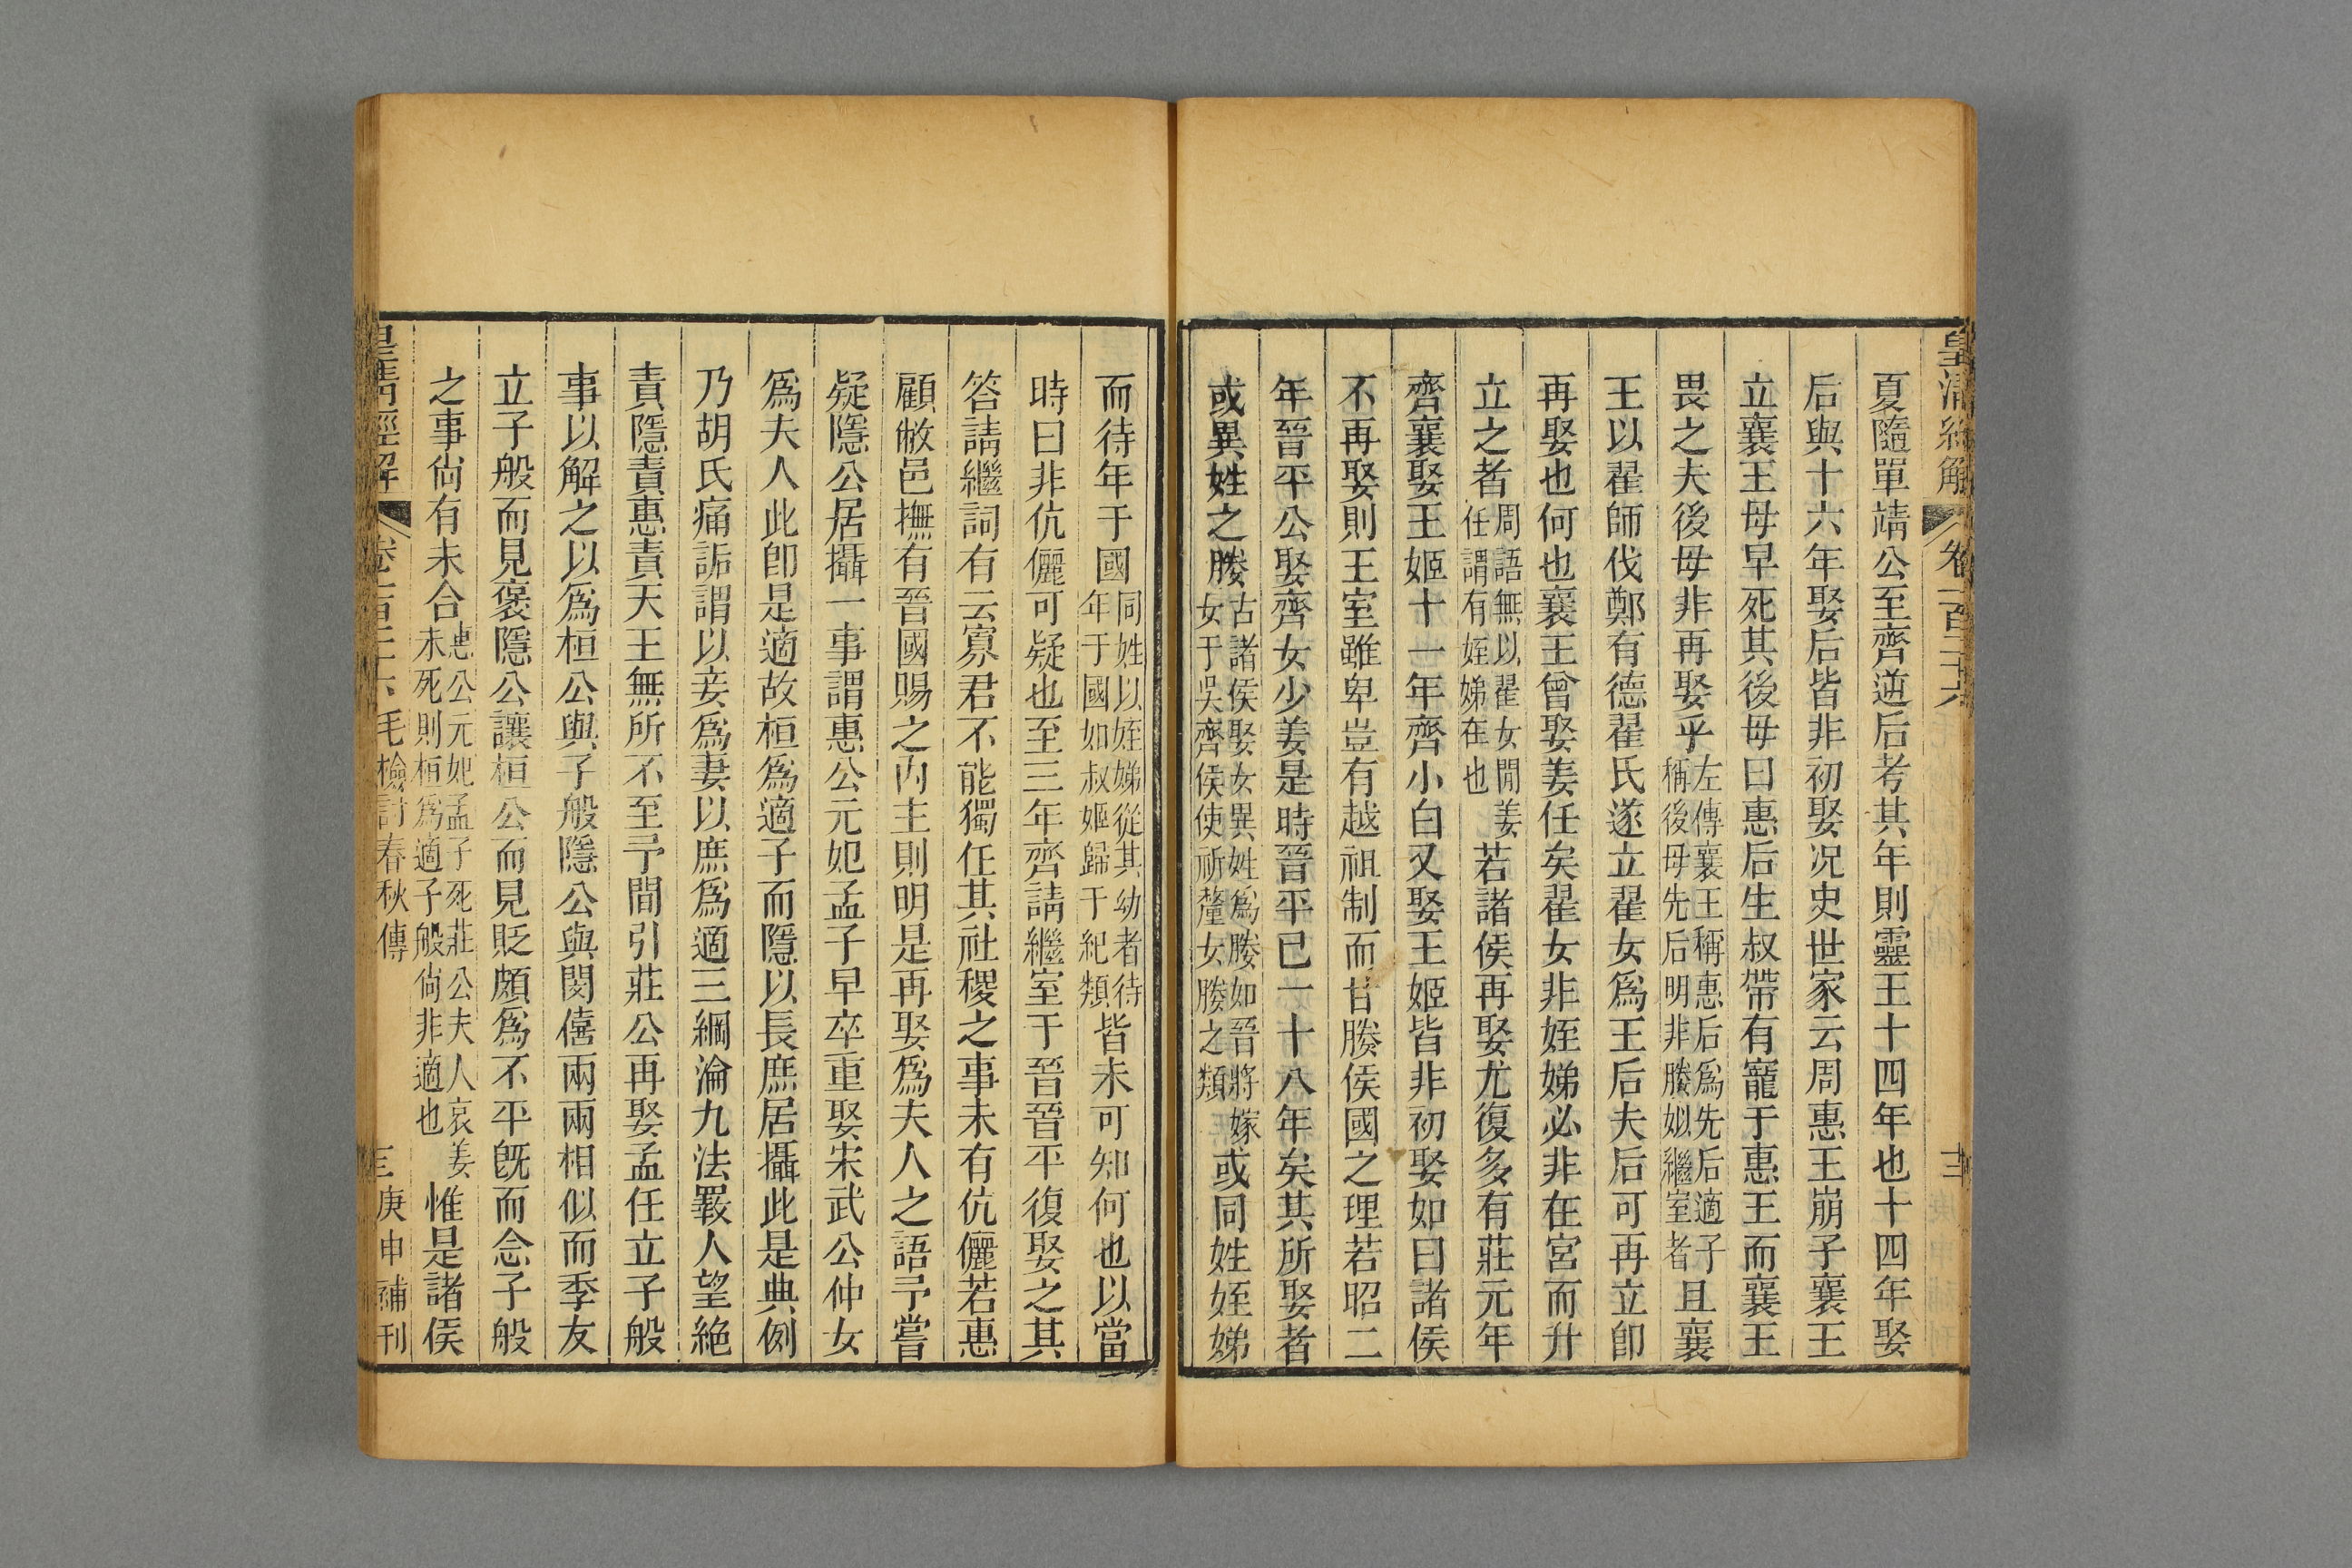 皇清經解 卷一百二十六 十二
夏隨單靖公至齊逆后考其年則靈王十四年也十四年娶
后與十六年娶后皆非初娶況史世家云周惠王崩子襄王
立襄王毋早死其後毋曰惠后生叔帶有寵于惠王而襄王
畏之夫後毋非再娶乎左傳襄王稱惠后爲先后適子稱後毋先后明非媵姒繼室者且襄
王以翟師伐鄭有德翟氏遂立翟女爲王后夫后可再立卽
再娶也何也襄王曾娶姜任矣翟女非姪娣必非在宮而升
立之者周語無以翟女閒姜任謂有姪娣在也若諸侯再娶尤復多有莊元年
齊襄娶王姬十一年齊小白又娶王姬皆非初娶如曰諸侯
不再娶則王室雖卑豈有越祖制而甘媵侯國之理若昭二
年晉平公娶齊女少姜是時晉平已一十八年矣其所娶者
或異姓之媵古諸侯娶女異姓爲媵如晉將嫁女于吳齊侯使析釐女媵之類或同姓姪娣
而待年于國同姓以姪娣從其幼者待年于國如叔姬歸于紀類皆未可知何也以當
時曰非伉儷可疑也至三年齊請繼室于晉晉平復娶之其
答請繼詞有云寡君不能獨任其社稷之事未有伉儷若惠
顧敝邑撫有晉國賜之內主則明是再娶爲夫人之語予嘗
疑隱公居攝一事謂惠公元妃孟子早卒重娶宋武公仲女
爲夫人此卽是適故桓爲適子而隱以長庶居攝此是典例
乃胡氏痛詬謂以妾爲妻以庶爲適三綱淪九法斁人望絕
責隱責惠責天王無所不至予間引莊公再娶孟任立子般
事以解之以爲桓公與子般隱公與閔僖兩兩相似而季友
立子般而見褒隱公讓桓公而見貶頗爲不平旣而念子般
之事尙有未合惠公元妃孟子死莊公夫人哀姜未死則桓爲適子般尙非適也惟是諸侯
皇清經解 卷一百二十六 毛檢討春秋傳 三 庚申補刊